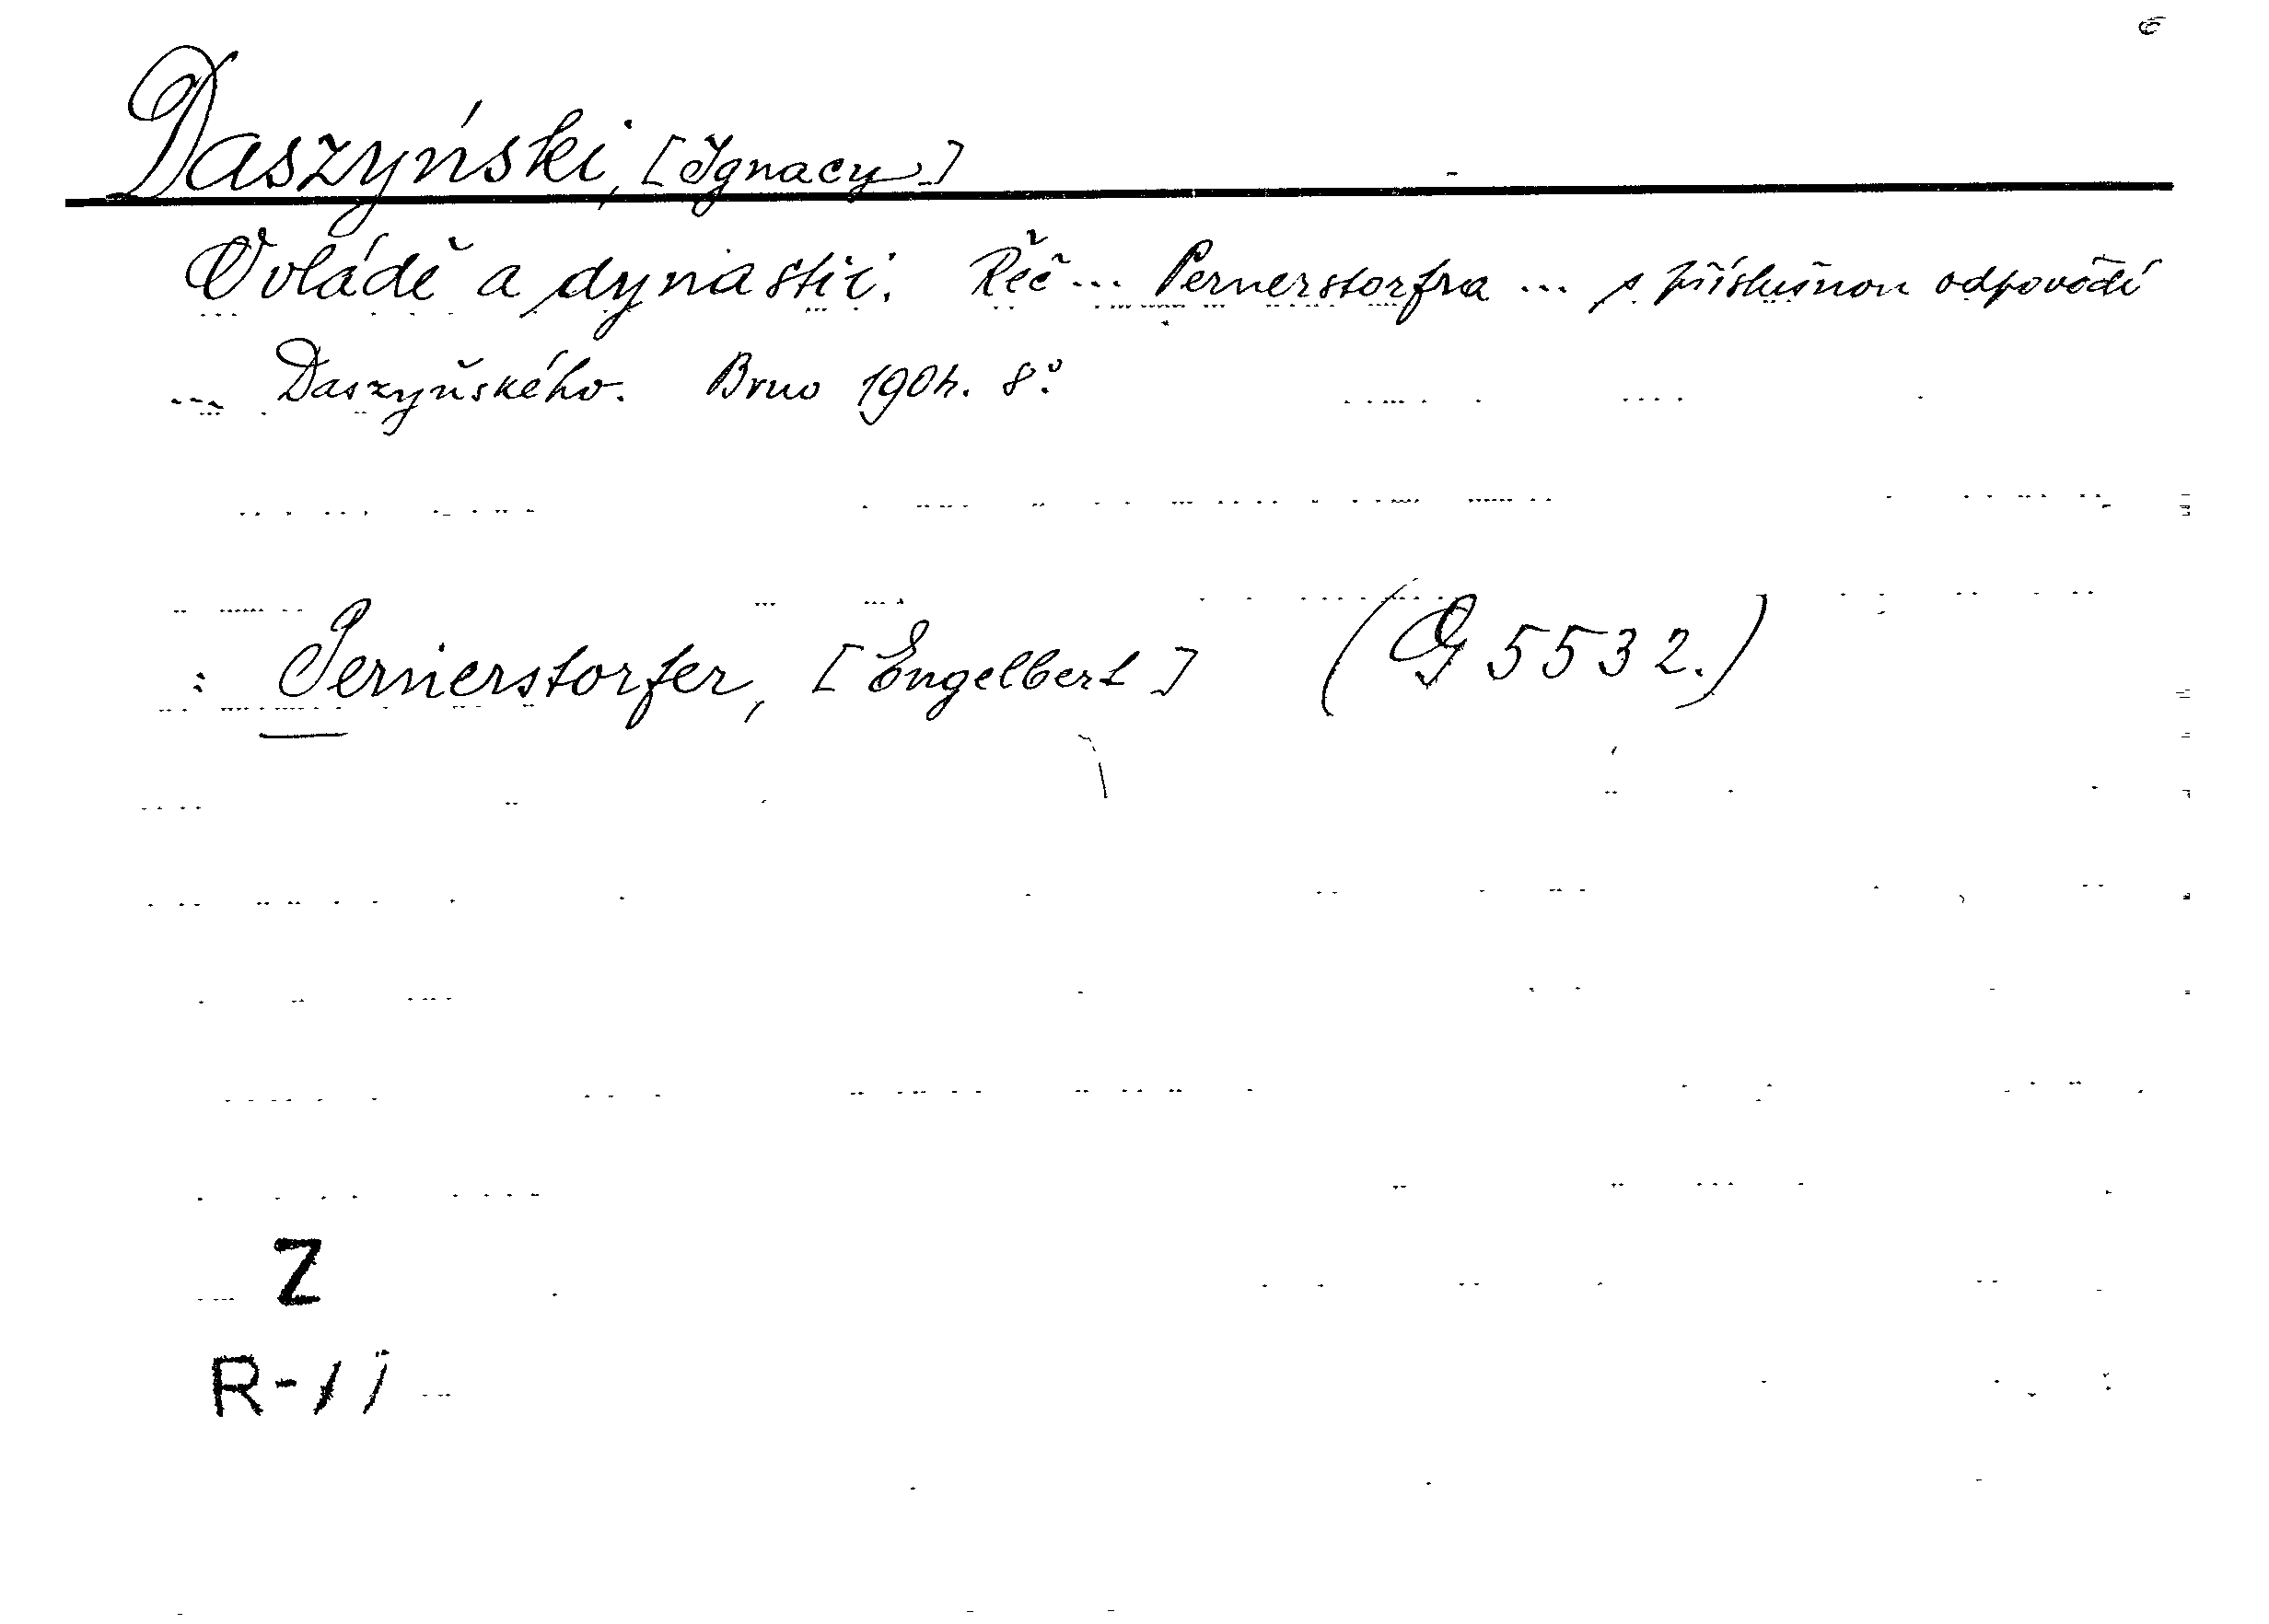 Daszyński, [Ignacy]
O vládě a dynastii. Řeč ... Pernerstorfra ... s příslušnou odpovědí
... Daszyňského. Brno 1904. 8°.
: Pernerstorfer, [Engelbert] (G 5532.)
Z
R-11